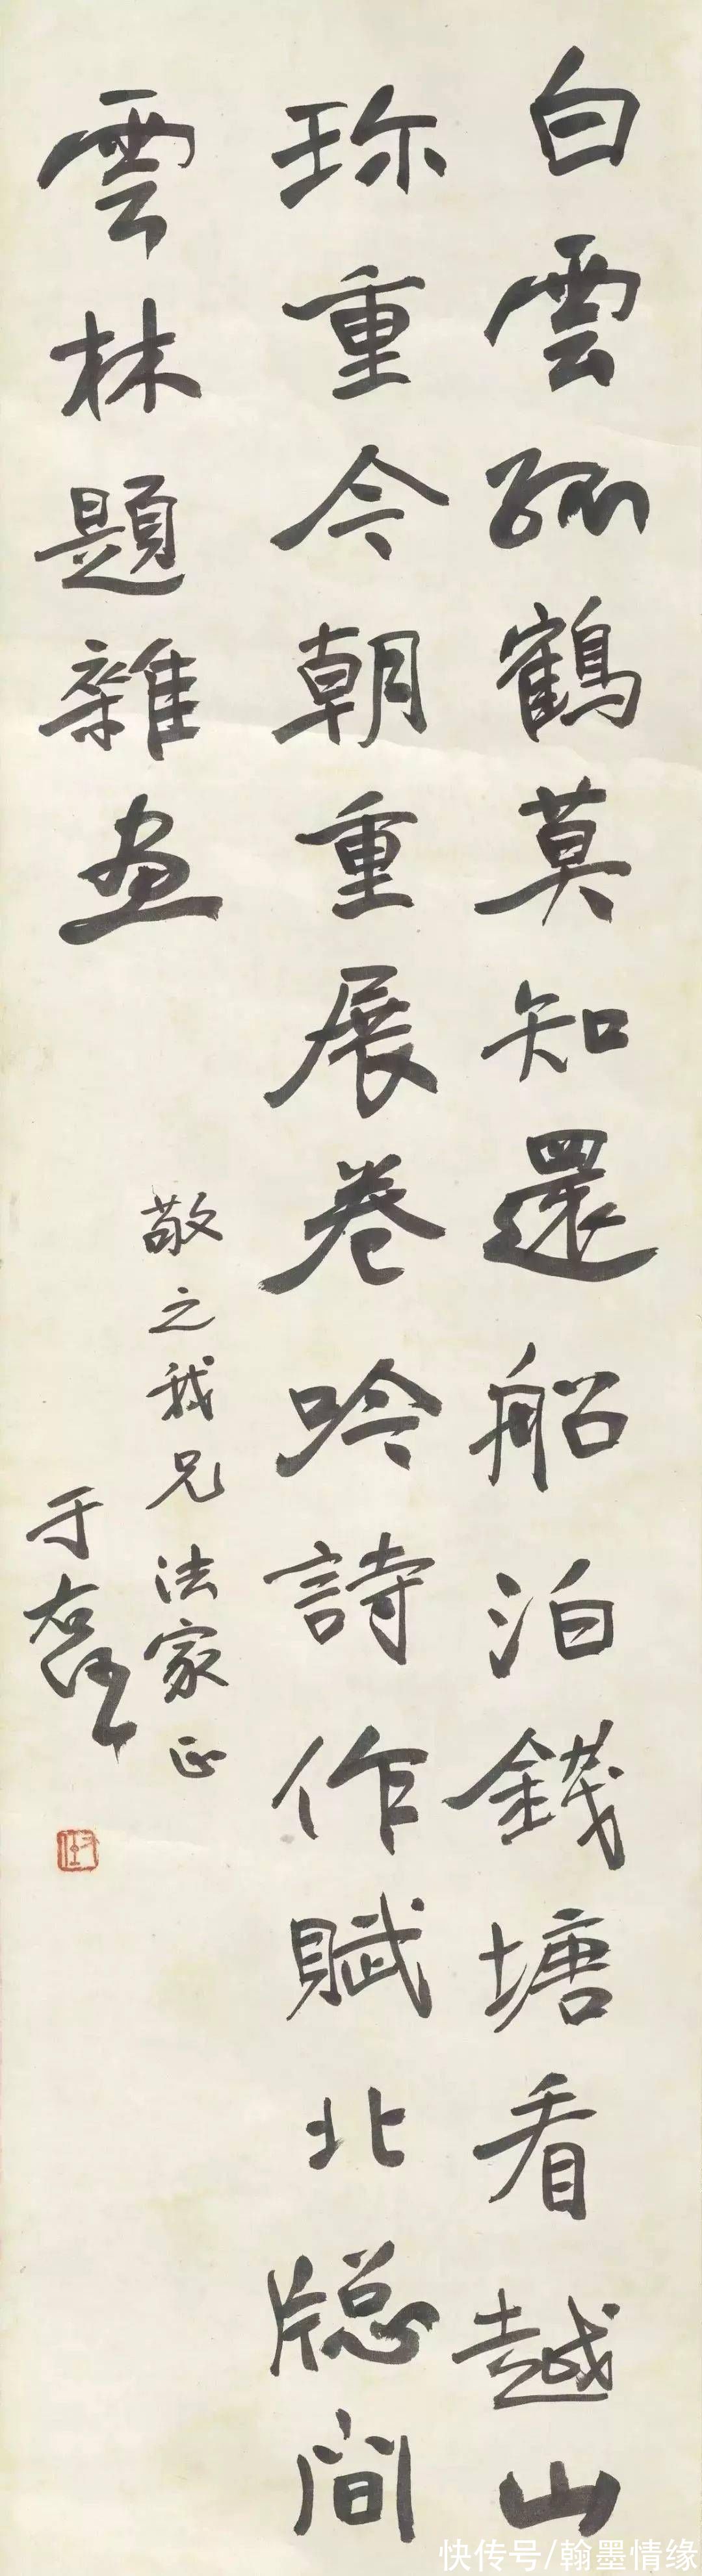 白雲孤鶴莫知還船泊錢塘看越山
珎重今朝重展卷吟詩作賦北牎間
雲林題雜畫
敬之我兄法家正
于右任
右任
快传号/翰墨情缘